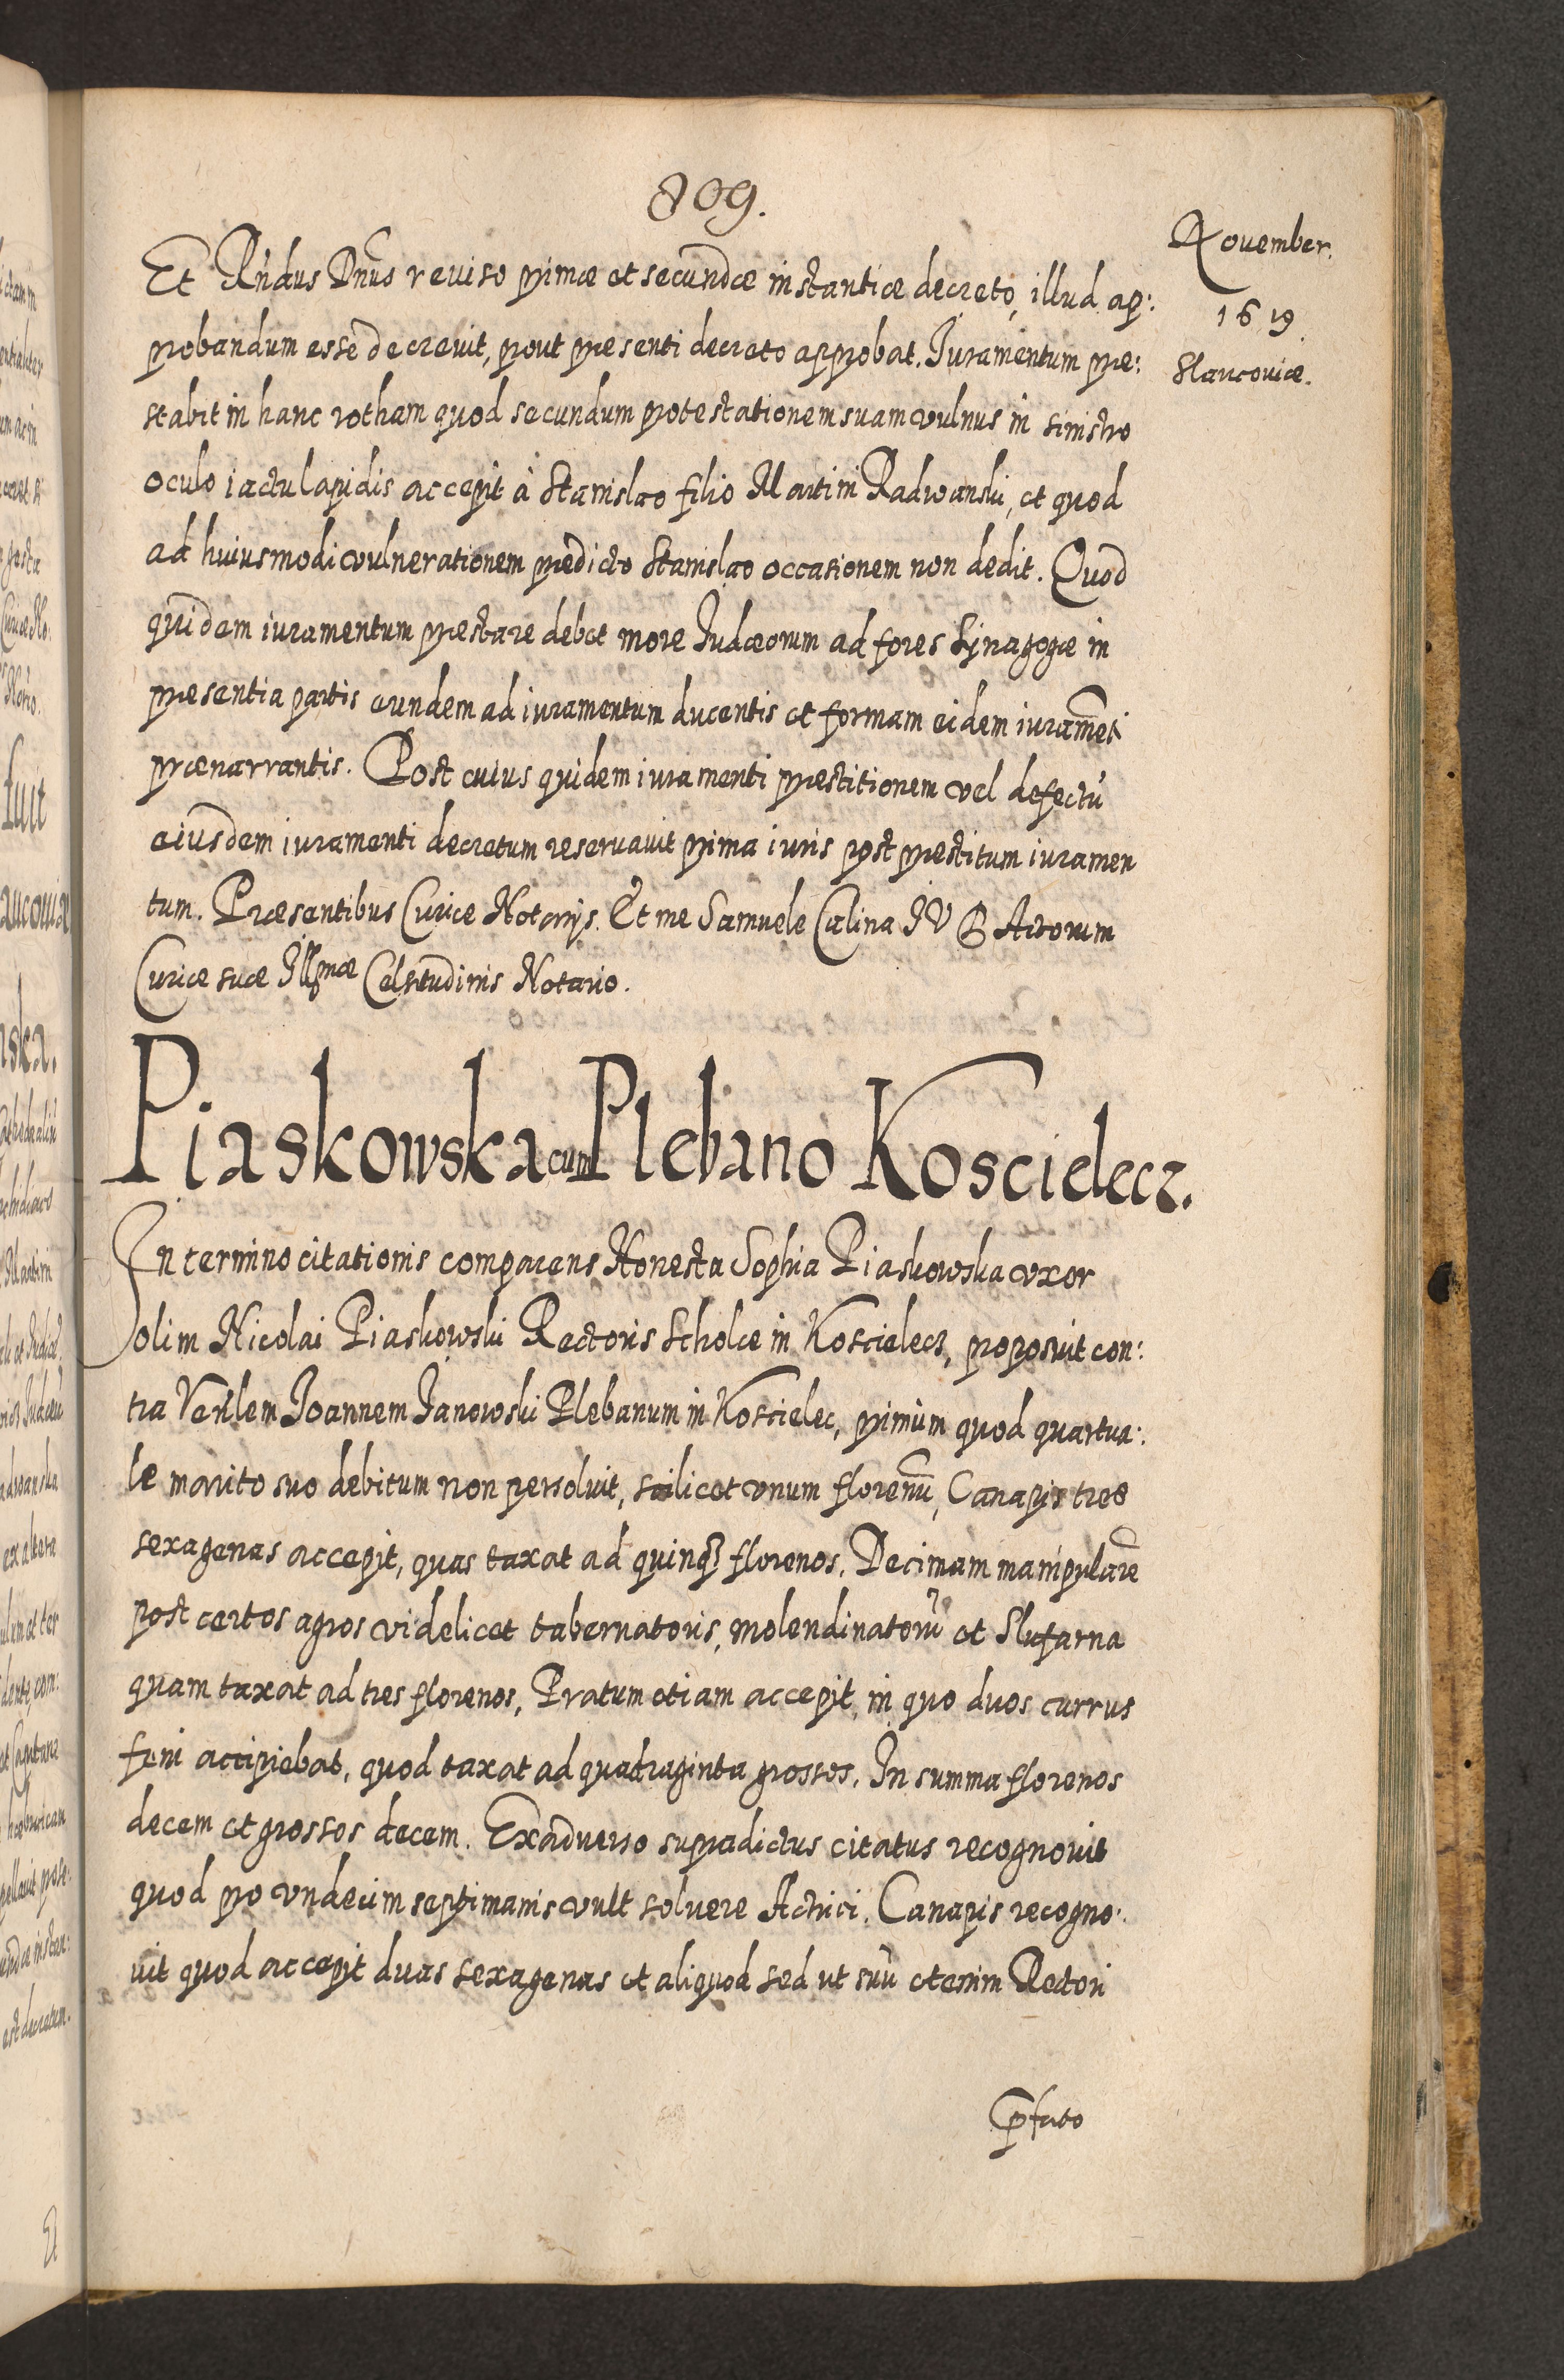 809.
November.
1619
Slaucouiæ.
Et Rńdus Dńus reuiso primæ et secundæ instantiæ decreto, illud ap:
probandum esse decreuit, prout præsenti decreto approbat. Iuramentum præ:
stabit in hanc rotham quod secundum protestationem suam vulnus in sinistro
oculo iactu lapidis accepit à Stanislao filio Martini Radwanski, et quod
ad huiusmodi vulnerationem prædicto Stanislao occasionem non dedit. Quod
quidem iuramentum præstare debet more Iudæorum ad fores Synagogæ in
præsentia partis eundem ad iuramentum ducentis et formam eidem iuramẽti
prænarrantis. Post cuius quidem iuramenti præstitionem vel defectũ
eiusdem iuramenti decretum reseruauit prima iuris post præstitum iuramen
tum. Præsentibus Curiæ Notarijs. Et me Samuele Calina IV D Actorum
Curiæ suæ Illmæ Celsitudinis Notario.
Piaskowska cum Plebano Koscielecz.
In termino citationis comparens Honesta Sophia Piaskowska vxor
olim Nicolai Piaskowski Rectoris Scholæ in Koscielecz, proposuit con:
tra Venlem Ioannem Janowski Plebanum in Koscielec, primum quod quartua:
le marito suo debitum non persoluit, scilicet vnum florenũ, Canapis tres
sexagenas accepit, quas taxat ad quinq3 florenos, Decimam manipularẽ
post certos agros videlicet tabernatoris, molendinatorũ et Slufarna
quam taxat ad tres florenos, Pratum etiam accepit, in quo duos currus
feni accipiebat, quod taxat ad quadraginta grossos. In summa florenos
decem et grossos decem. Ex aduerso supradictus citatus recognouit
quod pro vndecim septimanis vult soluere Actrici. Canapis recogno:
uit quod accepit duas sexagenas et aliquod sed ut suũ etenim Rectori
p̃fato